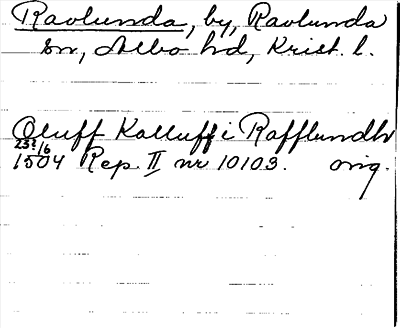 Ravlunda, by, Ravlunda
sn, Albo hd, Krist. l.
Oluff Kalluff i Rafflundh
23?/6
1504 Rep. II nr 10103. orig.